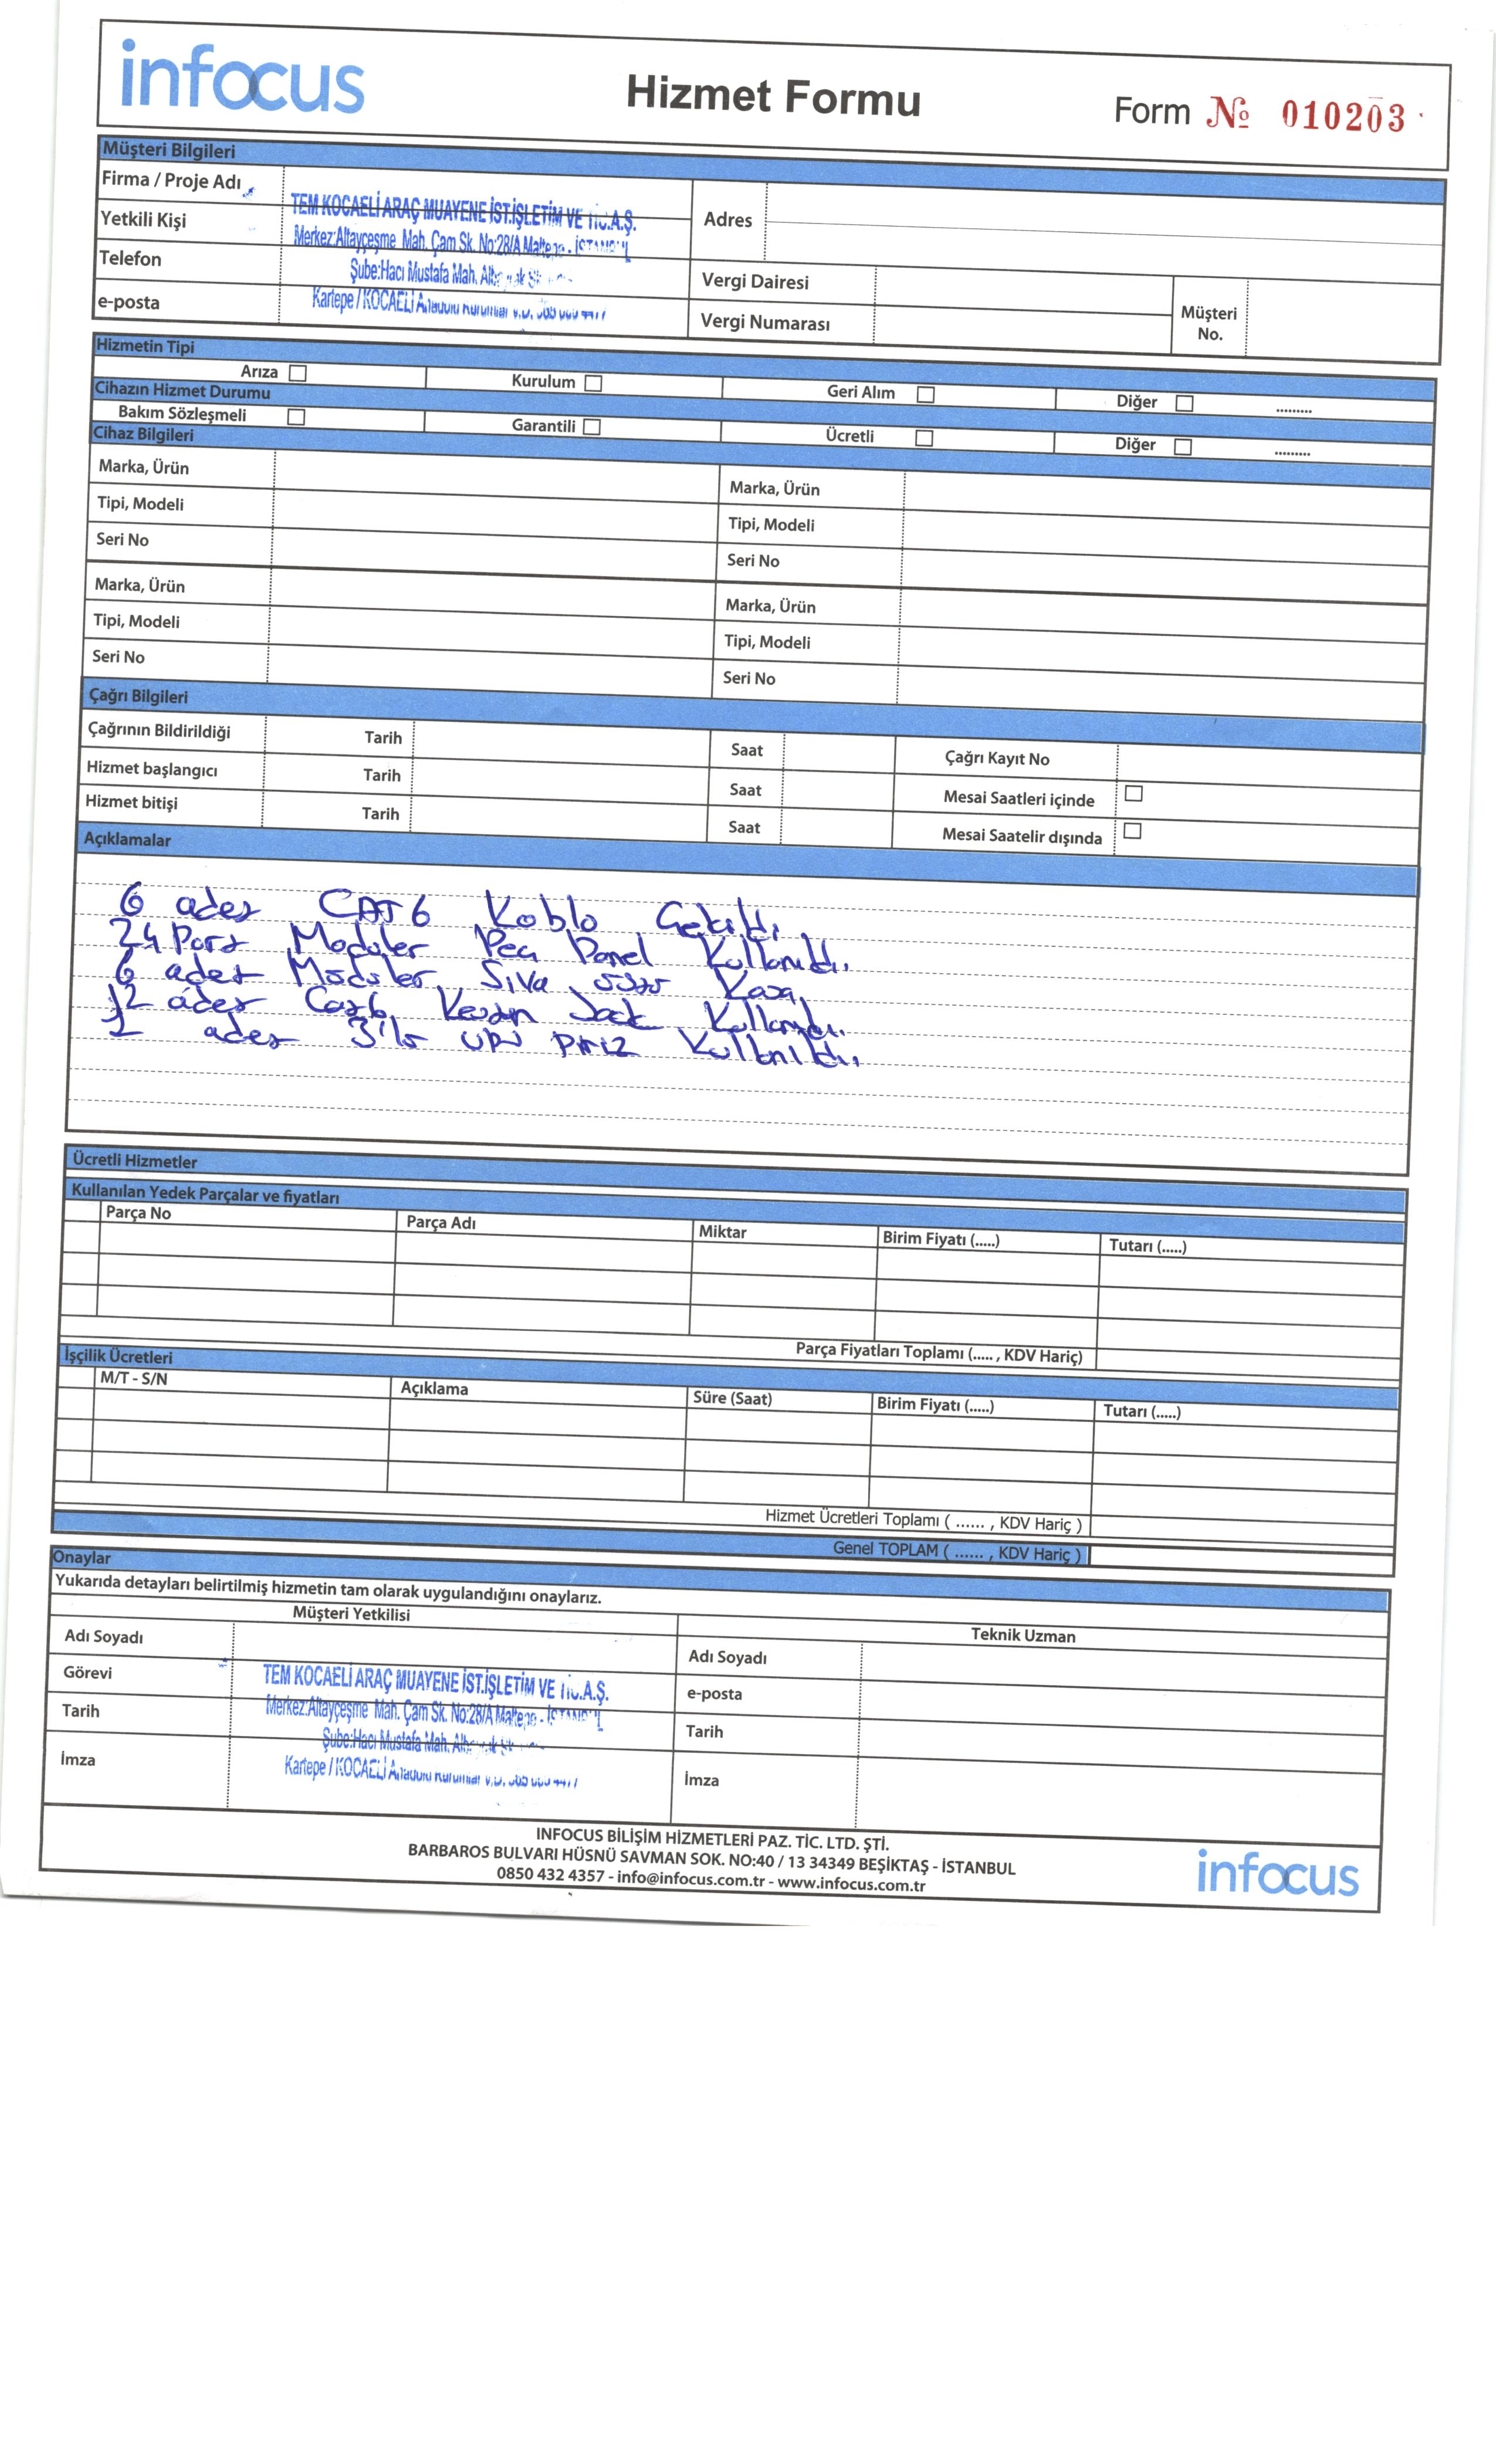 infocus
Hizmet Formu
Form № 010203
Müşteri Bilgileri
Firma / Proje Adı
Yetkili Kişi
Telefon
e-posta
TEM KOCAELİ ARAÇ MUAYENE İST.İŞLETİM VE TİC.A.Ş.
Merkez:Altayçeşme Mah. Çam Sk. No:28/A Maltepe - İSTANBUL
Şube:Hacı Mustafa Mah.
Kartepe / KOCAELİ Anadolu Kurumlar V.D.
Adres
Vergi Dairesi
Vergi Numarası
Müşteri
No.
Hizmetin Tipi
Arıza Kurulum Geri Alım Diğer .........
Cihazın Hizmet Durumu
Bakım Sözleşmeli Garantili Ücretli Diğer .........
Cihaz Bilgileri
Marka, Ürün Marka, Ürün
Tipi, Modeli Tipi, Modeli
Seri No Seri No
Marka, Ürün Marka, Ürün
Tipi, Modeli Tipi, Modeli
Seri No Seri No
Çağrı Bilgileri
Çağrının Bildirildiği Tarih Saat Çağrı Kayıt No
Hizmet başlangıcı Tarih Saat Mesai Saatleri içinde
Hizmet bitişi Tarih Saat Mesai Saatelir dışında
Açıklamalar
6 adet CAT6 Kablo Çekildi
24 Port Moduler Panel Kullanıldı.
6 adet Moduler Sıva üstü Kasa
12 adet Cat6 Jack Kullanıldı.
2 adet UPS Priz Kullanıldı.
Ücretli Hizmetler
Kullanılan Yedek Parçalar ve fiyatları
Parça No Parça Adı Miktar Birim Fiyatı (.....) Tutarı (.....)
Parça Fiyatları Toplamı (..... , KDV Hariç)
İşçilik Ücretleri
M/T - S/N Açıklama Süre (Saat) Birim Fiyatı (.....) Tutarı (.....)
Hizmet Ücretleri Toplamı ( ...... , KDV Hariç )
Genel TOPLAM ( ...... , KDV Hariç )
Onaylar
Yukarıda detayları belirtilmiş hizmetin tam olarak uygulandığını onaylarız.
Müşteri Yetkilisi
Teknik Uzman
Adı Soyadı
Görevi
Tarih
İmza
TEM KOCAELİ ARAÇ MUAYENE İST.İŞLETİM VE TİC.A.Ş.
Merkez:Altayçeşme Mah. Çam Sk. No:28/A Maltepe - İSTANBUL
Şube:Hacı Mustafa Mah.
Kartepe / KOCAELİ Anadolu Kurumlar V.D.
Adı Soyadı
e-posta
Tarih
İmza
INFOCUS BİLİŞİM HİZMETLERİ PAZ. TİC. LTD. ŞTİ.
BARBAROS BULVARI HÜSNÜ SAVMAN SOK. NO:40 / 13 34349 BEŞİKTAŞ - İSTANBUL
0850 432 4357 - info@infocus.com.tr - www.infocus.com.tr
infocus